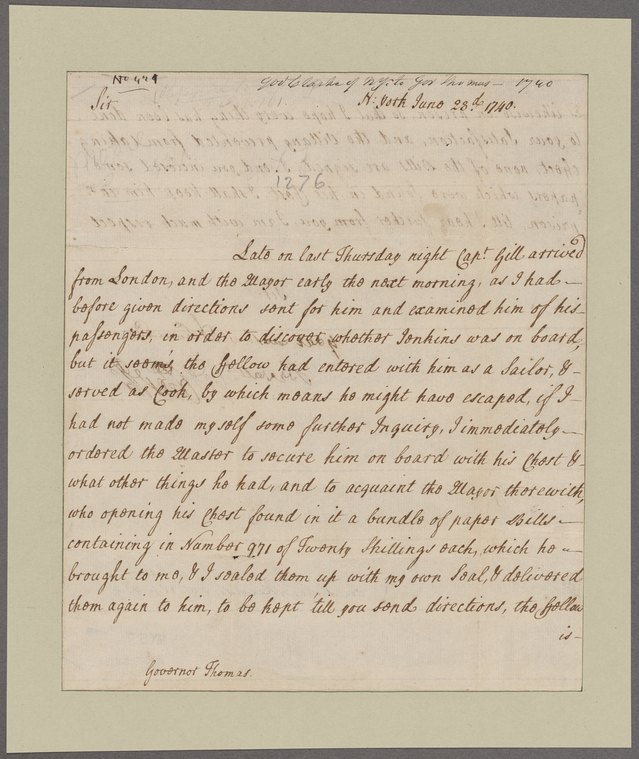 No 449
Gov Clarke of NY to Gov Thomas — 1740
Sir
N: York June 28.d 1740.
1276
Late on last Thursday night Cap.t Gill arrived
from London, and the Mayor early the next morning, as I had
before given directions sent for him and examined him of his
passengers, in order to discover whether Jenkins was on board,
but it seems, the ffellow had entered with him as a Sailor, &
served as Cook, by which means he might have escaped, if I
had not made myself some further Inquiry, I immediately
ordered the Master to secure him on board with his Chest &
what other things he had, and to acquaint the Mayor therewith,
who opening his Chest found in it a bundle of paper Bills
containing in Number 971 of Twenty Shillings each, which he
brought to me, & I sealed them up with my own Seal, & delivered
them again to him, to be kept 'till you send directions, the ffellow
is
Governor Thomas.